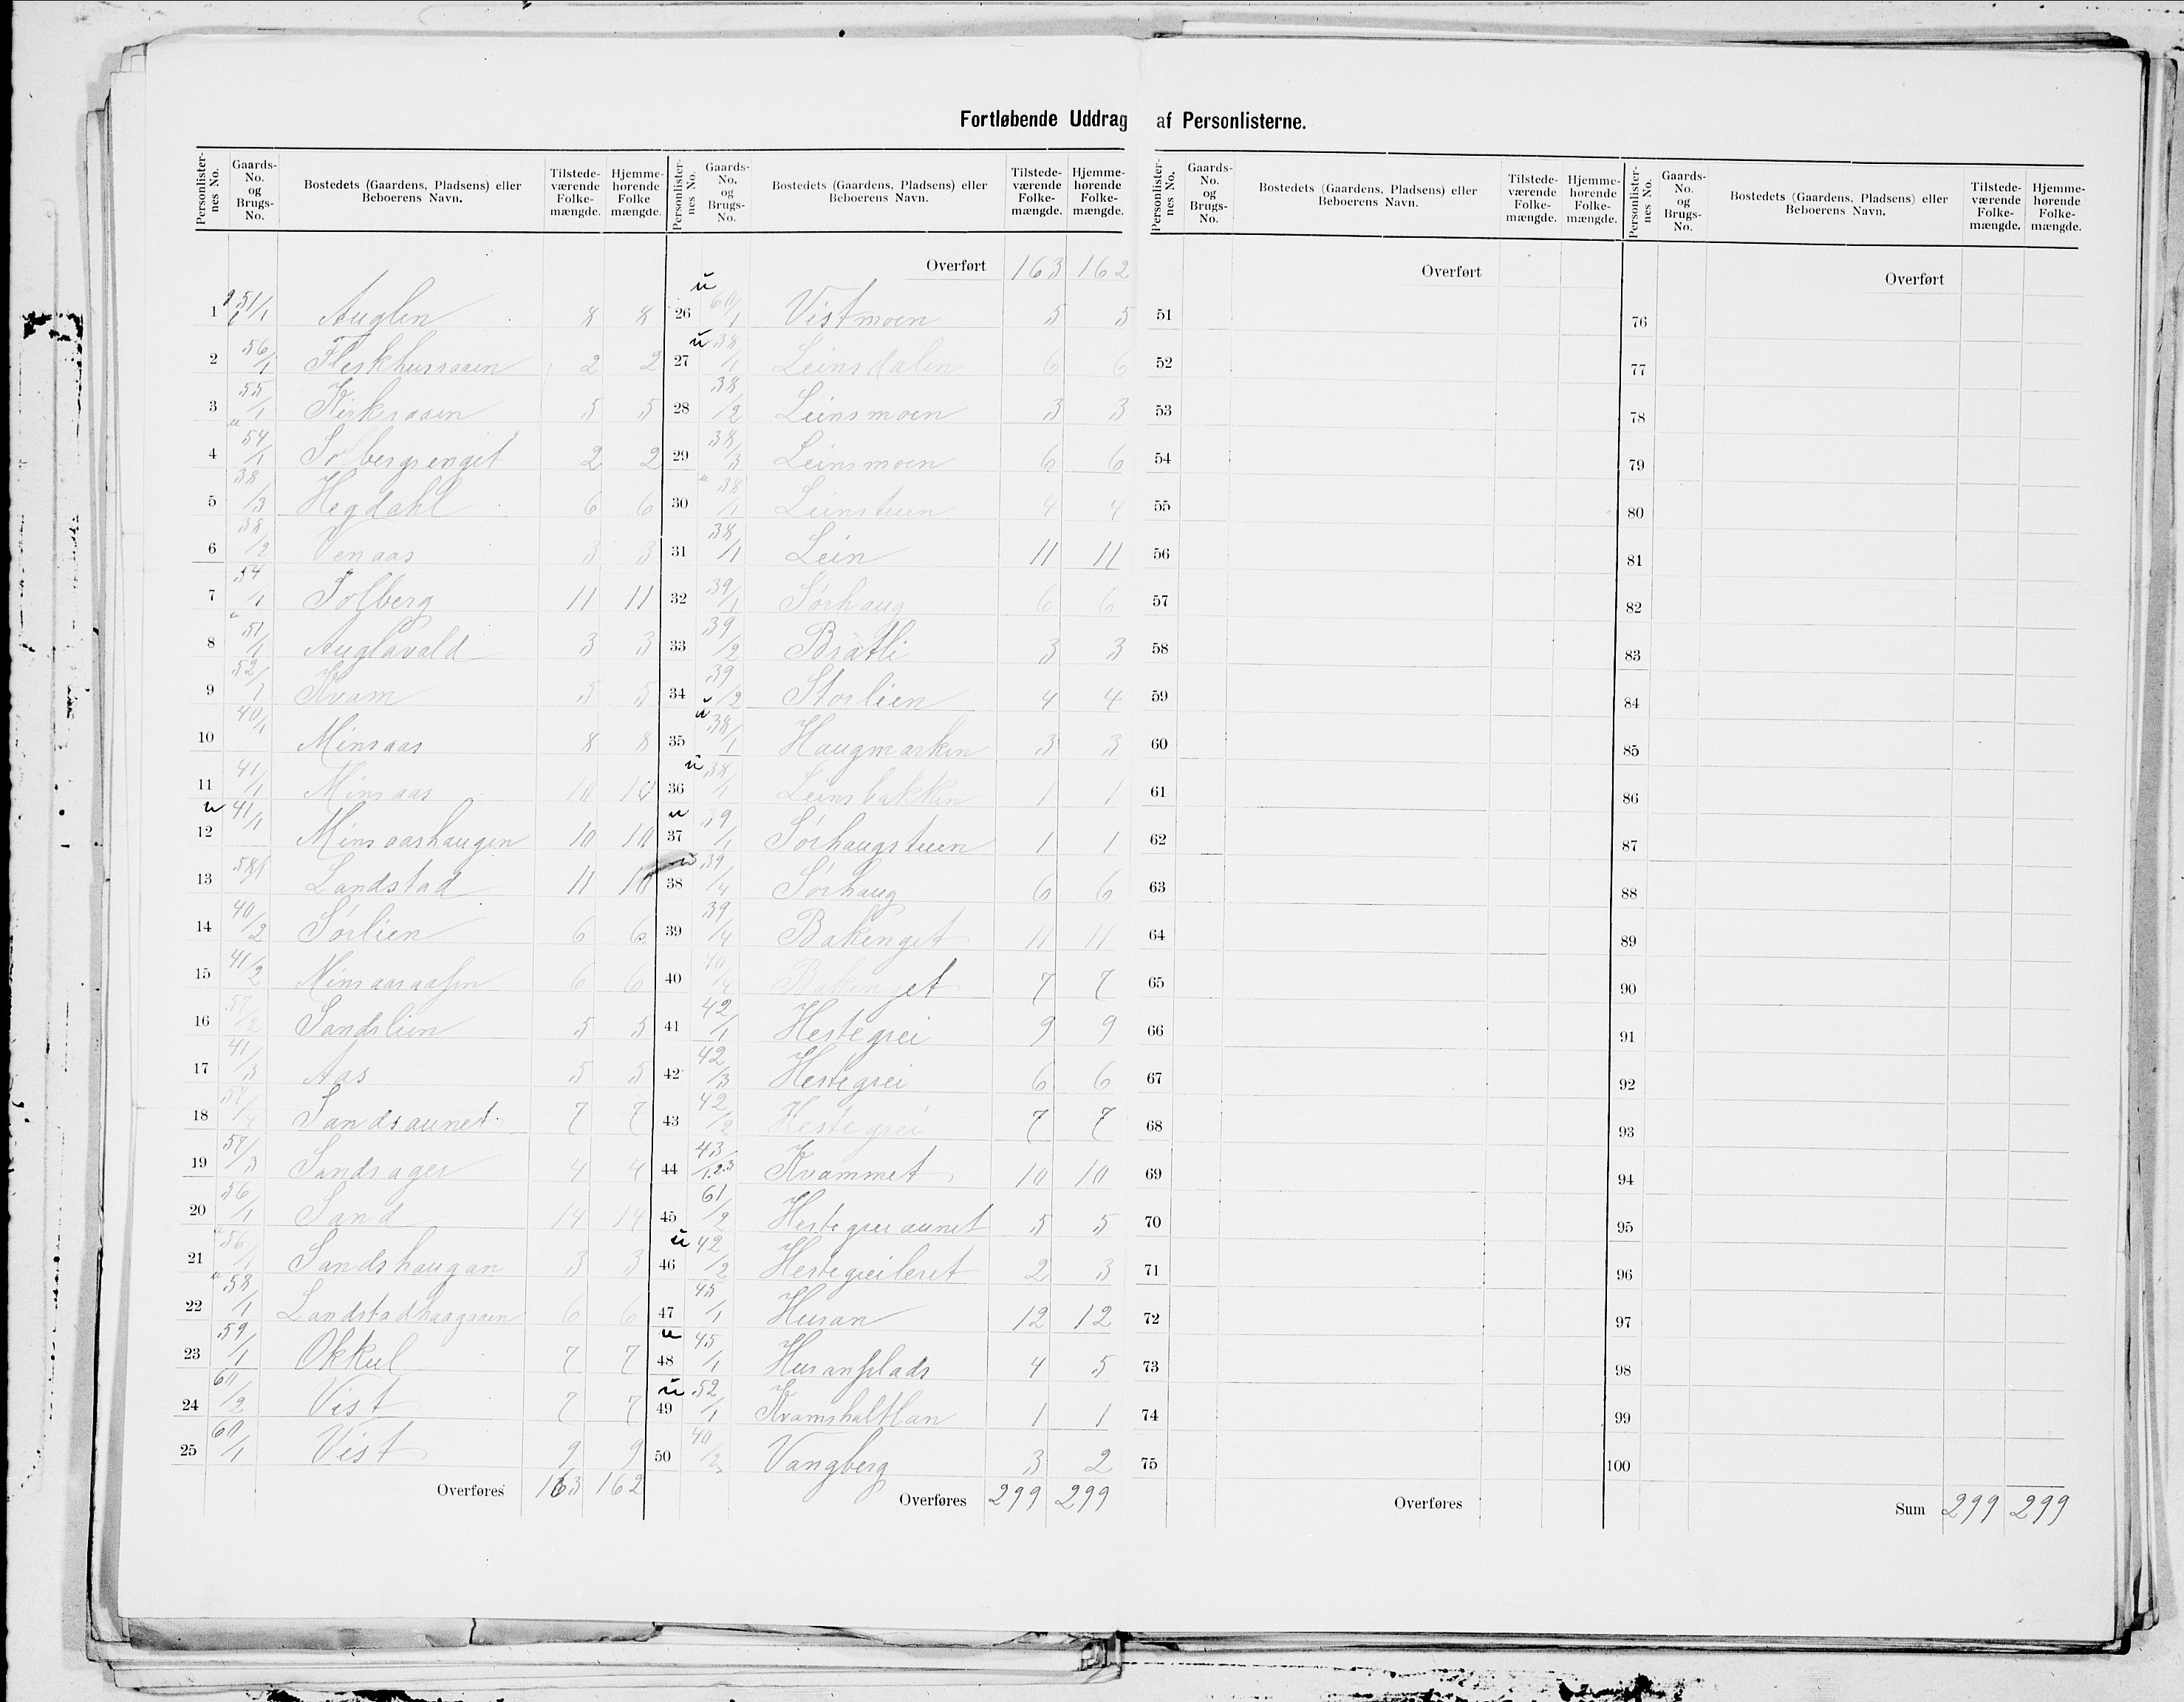 Fortløbende Uddrag af Personlisterne.
Personlister-nes No. | Gaards-No. og Brugs-No. | Bostedets (Gaardens, Pladsens) eller Beboerens Navn. | Tilstede-værende Folke-mængde. | Hjemme-hørende Folke mængde.
1 51/1 Auglen 8 8
2 56/1 Fleskhusaasen 2 2
3 55/1 Kirkeaasen 5 5
4 u 54/1 Solbergsenget 2 2
5 38/3 Hegdahl 6 6
6 38/2 Venaas 3 3
7 54/1 Solberg 11 11
8 u 51/1 Auglavald 3 3
9 52/1 Kvam 5 5
10 40/1 Minsaas 8 8
11 41/1 Minsaas 10 10
12 u 41/1 Minsaashaugen 10 10
13 58/1 Landstad 11 10
14 40/2 Sørlien 6 6
15 41/2 Minsaasaasen 6 6
16 57/2 Sandslien 5 5
17 41/3 Aas 5 5
18 57/4 Sandsaunet 7 7
19 57/3 Sandsager 4 4
20 56/1 Sand 14 14
21 u 56/1 Sandshaugan 3 3
22 u 58/1 Landstadhaagaaen 6 6
23 59/1 Okkul 7 7
24 60/2 Vist 7 7
25 60/1 Vist 9 9
Overføres 163 162
Personlister-nes No. | Gaards-No. og Brugs-No. | Bostedets (Gaardens, Pladsens) eller Beboerens Navn. | Tilstede-værende Folke-mængde. | Hjemme-hørende Folke-mængde.
Overført 163 162
26 u 60/1 Vistmoen 5 5
27 u 38/1 Leinsdalen 6 6
28 38/2 Leinsmoen 3 3
29 38/3 Leinsmoen 6 6
30 u 38/1 Leinstuen 4 4
31 38/1 Lein 11 11
32 39/1 Sørhaug 6 6
33 39/2 Bratli 3 3
34 39/2 Storlien 4 4
35 u 38/1 Haugmarken 3 3
36 u 38/1 Leinsbakken 1 1
37 u 39/1 Sørhaugstuen 1 1
38 u 39/4 Sørhaug 6 6
39 39/4 Bakenget 11 11
40 40/4 Bakenget 7 7
41 42/1 Hestegrei 9 9
42 42/3 Hestegrei 6 6
43 42/2 Hestegrei 7 7
44 43/1.2.3 Kvammet 10 10
45 61/2 Hestegreiaunet 5 5
46 u 42/2 Hestegreileret 2 3
47 45/1 Husan 12 12
48 u 45/1 Husanplads 4 5
49 u 52/1 Kvamshaltlan 1 1
50 40/3 Vangberg 3 2
Overføres 299 299
Personlister-nes No. | Gaards-No. og Brugs-No. | Bostedets (Gaardens, Pladsens) eller Beboerens Navn. | Tilstede-værende Folke-mængde. | Hjemme-hørende Folke-mængde.
Overført
51
52
53
54
55
56
57
58
59
60
61
62
63
64
65
66
67
68
69
70
71
72
73
74
75
Overføres
Personlister-nes No. | Gaards-No. og Brugs-No. | Bostedets (Gaardens, Pladsens) eller Beboerens Navn. | Tilstede-værende Folke-mængde. | Hjemme-hørende Folke-mængde.
Overført
76
77
78
79
80
81
82
83
84
85
86
87
88
89
90
91
92
93
94
95
96
97
98
99
100
Sum 299 299